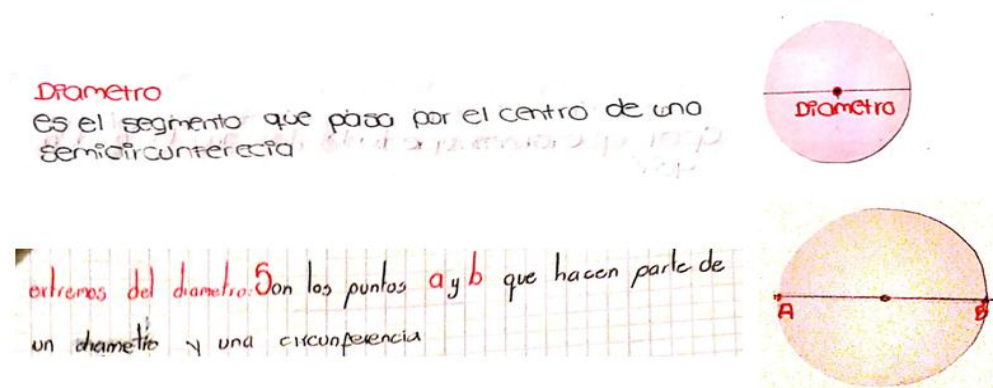 Diametro
es el segmento que pasa por el centro de una
semicircunferecia
Diametro
extremos del diametro: Son los puntos a y b que hacen parte de
un diametro y una circunferencia
A
B